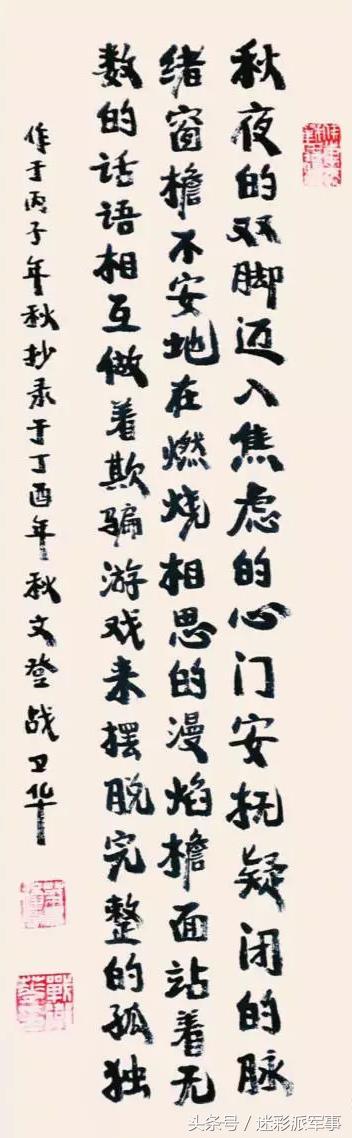 秋夜的双脚迈入焦虑的心门安抚疑闭的脉
绪窗檐不安地在燃烧相思的漫焰檐面站着无
数的话语相互做着欺骗游戏来摆脱完整的孤独
作于丙子年秋抄录于丁酉年秋文登战卫华
头条号/迷彩派军事